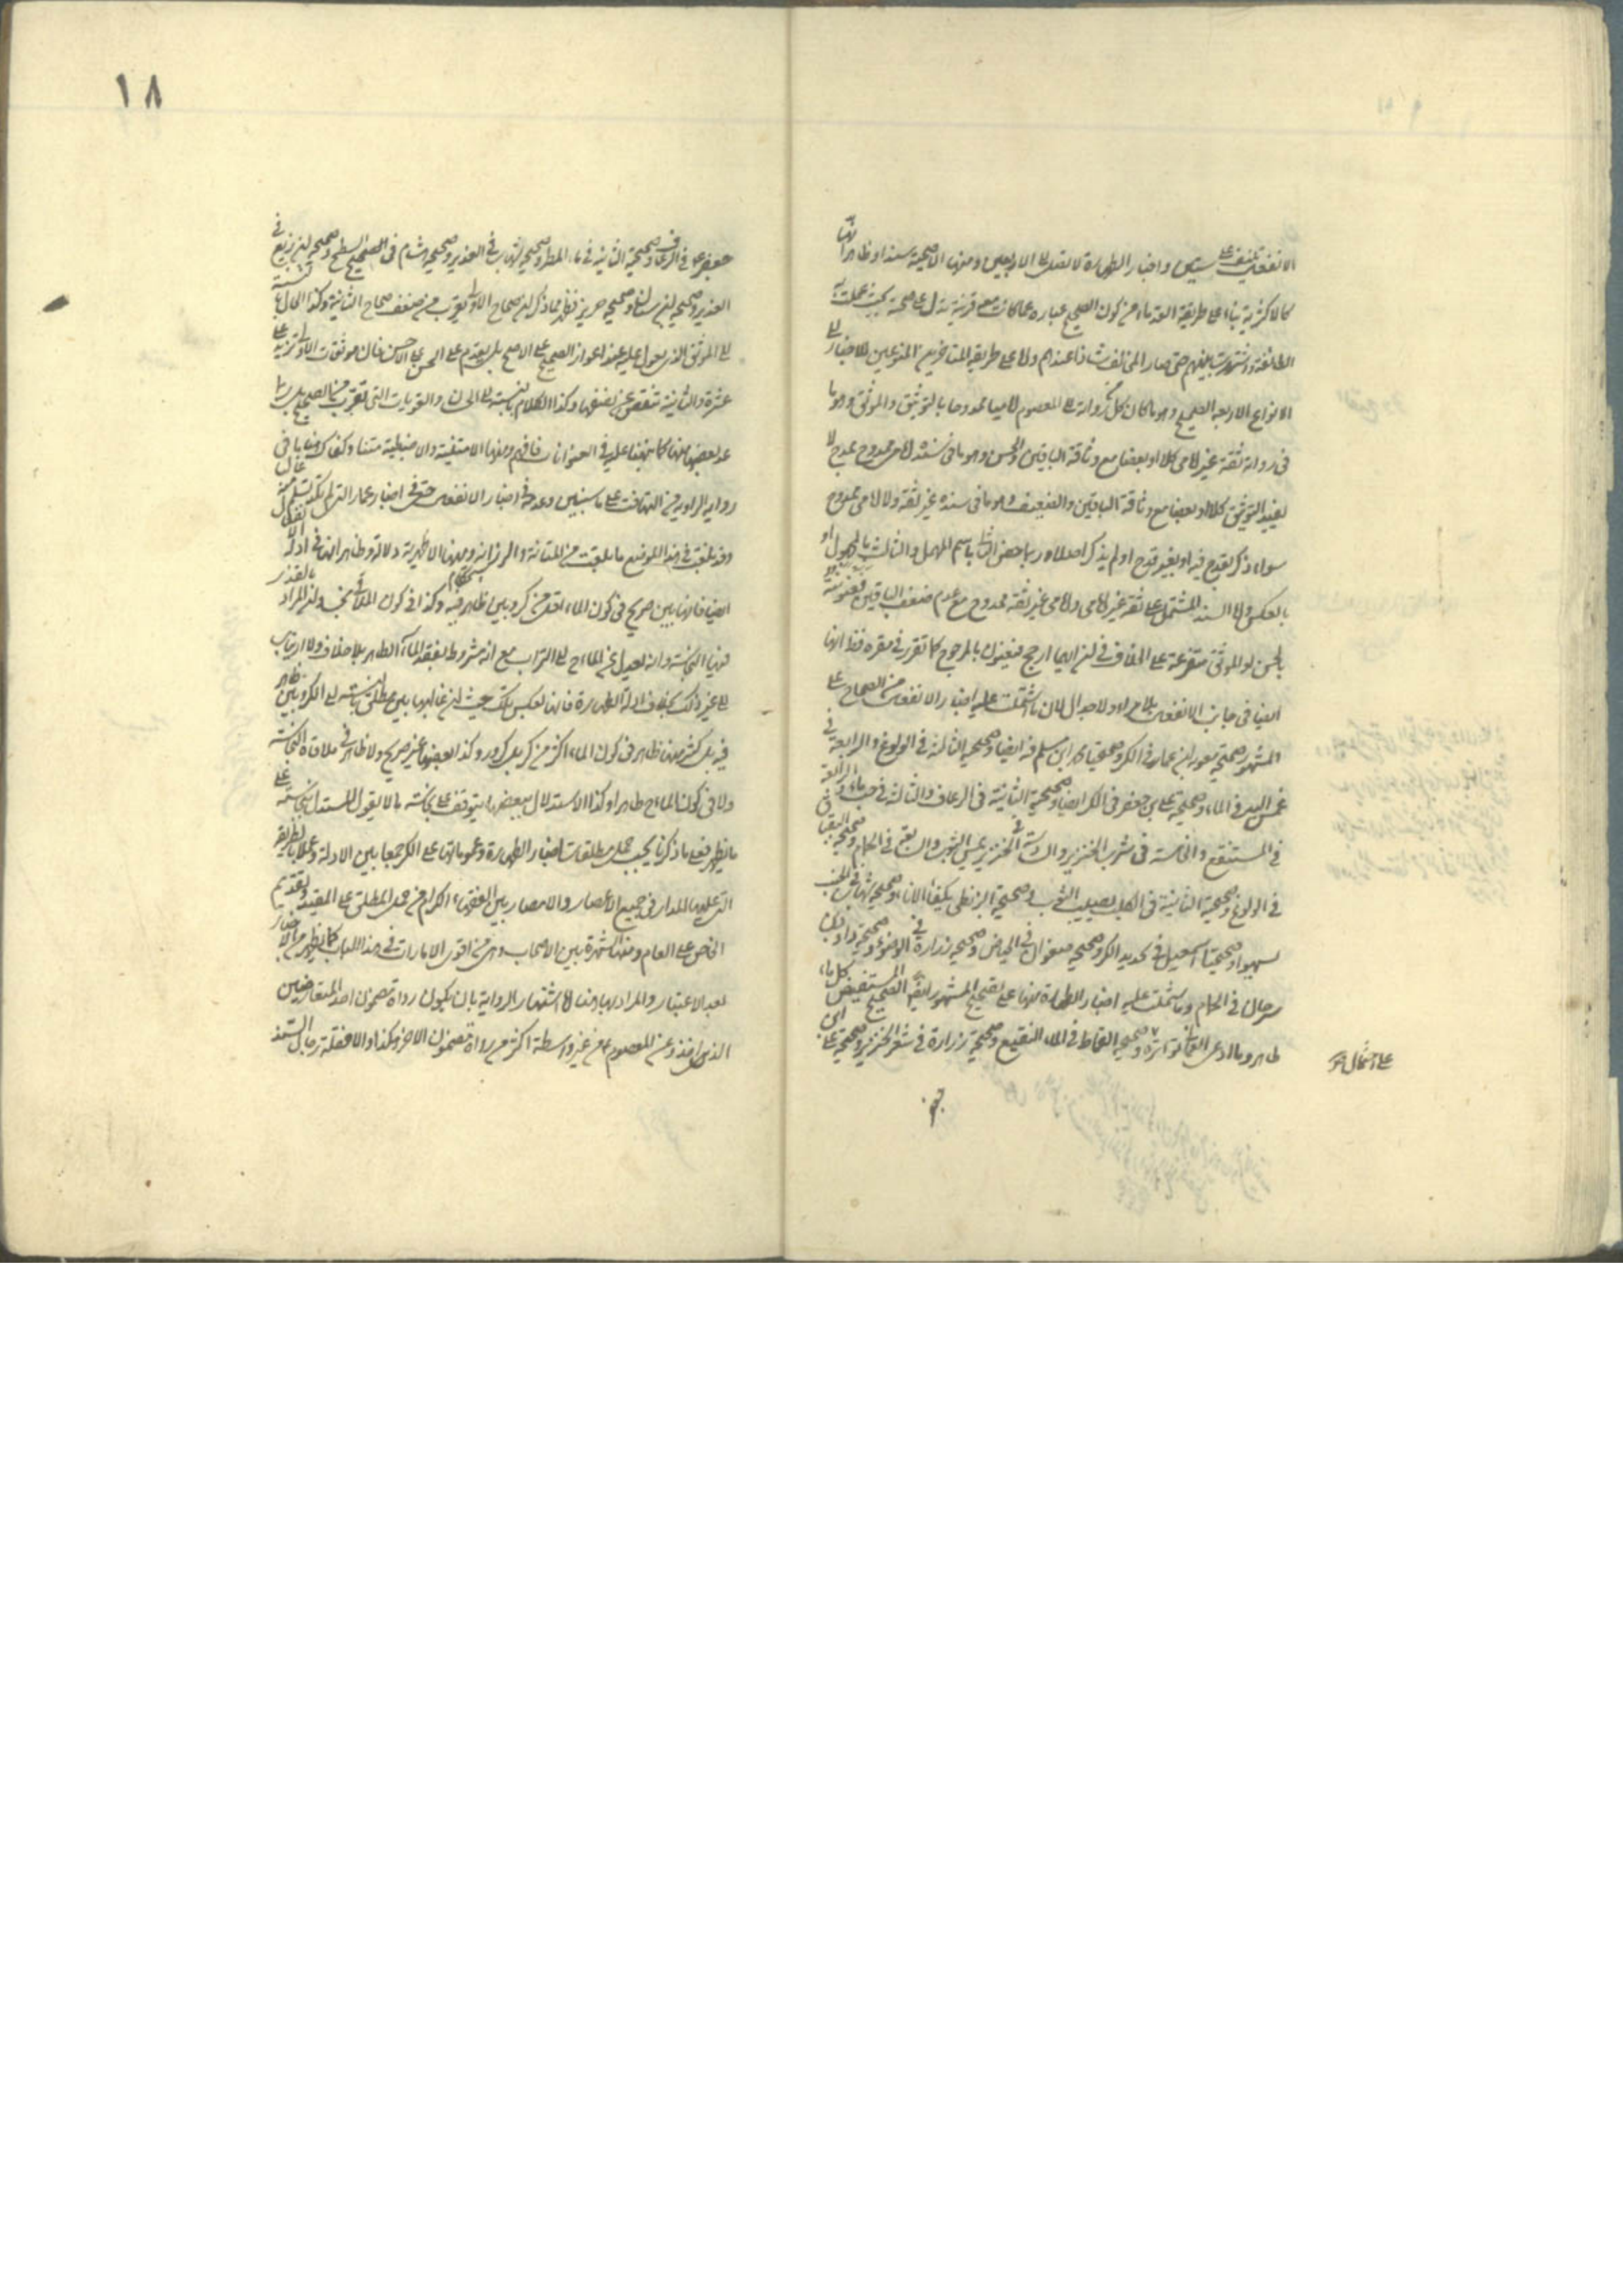 الانفعال تنيف على ستين واخبار الطهارة لا تصل الى الاربعين ومنها الاصحية سندا وظاهر انها
كالاكثرية بناء على طريقة القدماء من كون الصحيح عبارة عما كانت معه قرينة تدل على صحته بحيث عملت به
الطائفة واشتهرت بينهم حتى صار المخالف شاذا عندهم واما على طريقة المتاخرين المنوعين للاخبار الى
الانواع الاربعة الصحيح وهو ما كان كل رواته الى المعصوم اماميا ممدوحا بالتوثيق والموثق وهو ما
في رواته ثقة غير امامي كلا او بعضا مع وثاقة الباقين والحسن وهو ما في سنده امامي ممدوح بمدح لا
يفيد التوثيق كلا او بعضا مع وثاقة الباقين والضعيف وهو ما في سنده غير ثقة ولا امامي ممدوح
سواء ذكر بقدح فيه او بغير قدح او لم يذكر اصلا وربما خص الثاني باسم المهمل والثالث بالمجهول او
بالعكس واما السند المشتمل على ثقة غير امامي وامامي غير ثقة ممدوح مع عدم ضعف الباقين فعنونته
بالحسن او الموثق متفرعة على الخلاف في ان ايهما ارجح فيعنون بالمرجوح كما تقرر في مقره فذا انها
ايضا في جانب الانفعال بلا مراء ولا جدال لان ما اشتملت عليه اخبار الانفعال من الصحاح على
المشهور صحيحة معوية ابن عمار في الكر وصحيحتا محمد ابن مسلم فيه ايضا وصحيحته الثالثة في الولوغ والرابعة في
غمس اليد في الماء وصحيحة علي بن جعفر في الكر ايضا وصحيحته الثانية في الرعاف والثالثة في
في المستنقع والخامسة في شرب الخنزير والسادسة في الخنزير يمس الثوب والسابعة في الحمام وصحيحة البقباق
في الولوغ وصحيحته الثانية في الكلب يصيب الثوب وصحيحة البزنطي يكفئ الاناء وصحيحة شهاب في الجنب
يسهو وصحيحتا اسمعيل في تحديد الكر وصحيحة صفوان في الحياض وصحيحة زرارة في الوضوء وصحيحة داود بن
سرحان في الحمام وما اشتملت عليه اخبار الطهارة منها على تصحيح المشهور ايضا الصحيح المستفيض كل ماء
طاهر وما ادعى العماني تواتره وصحيحة القماط في الماء النقيع وصحيحة زرارة في شعر الخنزير وصحيحة علي ابن
على احتمال
١٨
جعفر في الرعاف وصحيحته الثانية في ماء المطر وصحيحة شهاب في الغدير وصحيحة هشام في السطح وصحيحة ابن بزيع في
الغدير وصحيحة ابن سنان وصحيحة حريز فظهر مما ذكر ان صحاح الاولى تقرب من ضعف صحاح الثانية وكذا الحال بالنسبة
الى الموثق الذي يعول عليه عند اعواز الصحيح على الاصح بل يقدم على الحسن على الاحسن فان موثقات الاولى تزيد على
عشرة والثانية تنقص عن نصفها وكذا الكلام بالنسبة الى الحسان والقويات التي تقرب من الصحيح بل ربما
عد بعضها منها كما نبهنا عليه في العنوانات فافهم ومنها الامتنية والاضبطية متنا وكفاك
رواية الراوي من التهافت على ما سنبين وعدمه في اخبار الانفعال حتى في اخبار عمار التي لم تكد تسلم منه غالبا
وقد بلغت في هذا الموضع ما بلغت من المتانة والرزانة ومنها الاظهرية دلالة وظاهر انها في ادلة الانفعال
ايضا فانها بين صريح في كون الماء اقل من كر وبين ظاهر فيه وكذا في كون الملاقي نجسا وان المراد بالقذر
فيها النجاسة وانه يعدل عن الماء الى التراب مع انه مشروط بفقد الماء الطاهر بلا خلاف ولا ارتياب
الى غير ذلك بخلاف ادلة الطهارة فانها بعكس ذلك حيث ان غالبها بين مطلق بالنسبة الى الكر وبين ظاهر
فيه بل كثير منها ظاهر في كون الماء اكثر من كر بل كرور وكذا بعضها غير صريح ولا ظاهر في ملاقاة النجاسة
ولا في كون الماء طاهرا وكذا الاستدلال ببعضها يتوقف على نجاسة ما لا يقول المستدل بنجاسته على
ما يظهر فعلى ما ذكرنا يجب حمل مطلقات اخبار الطهارة وعموماتها على الكر جمعا بين الادلة وعملا بالطريقة
التي عليها المدار في جميع الاعصار والامصار بين الفقهاء الكرام من حمل المطلق على المقيد وتقديم
الخاص على العام ومنها الشهرة بين الاصحاب وهي من اقوى الامارات في هذا الباب كما يظهر من الاخبار
بعد الاعتبار والمراد بها هنا اما اشتهار الرواية بان يكون رواة مضمون احد المتعارضين
الذين اخذوه عن المعصوم من غير واسطة اكثر من رواة مضمون الاخر وهكذا والا فقلة رجال السند